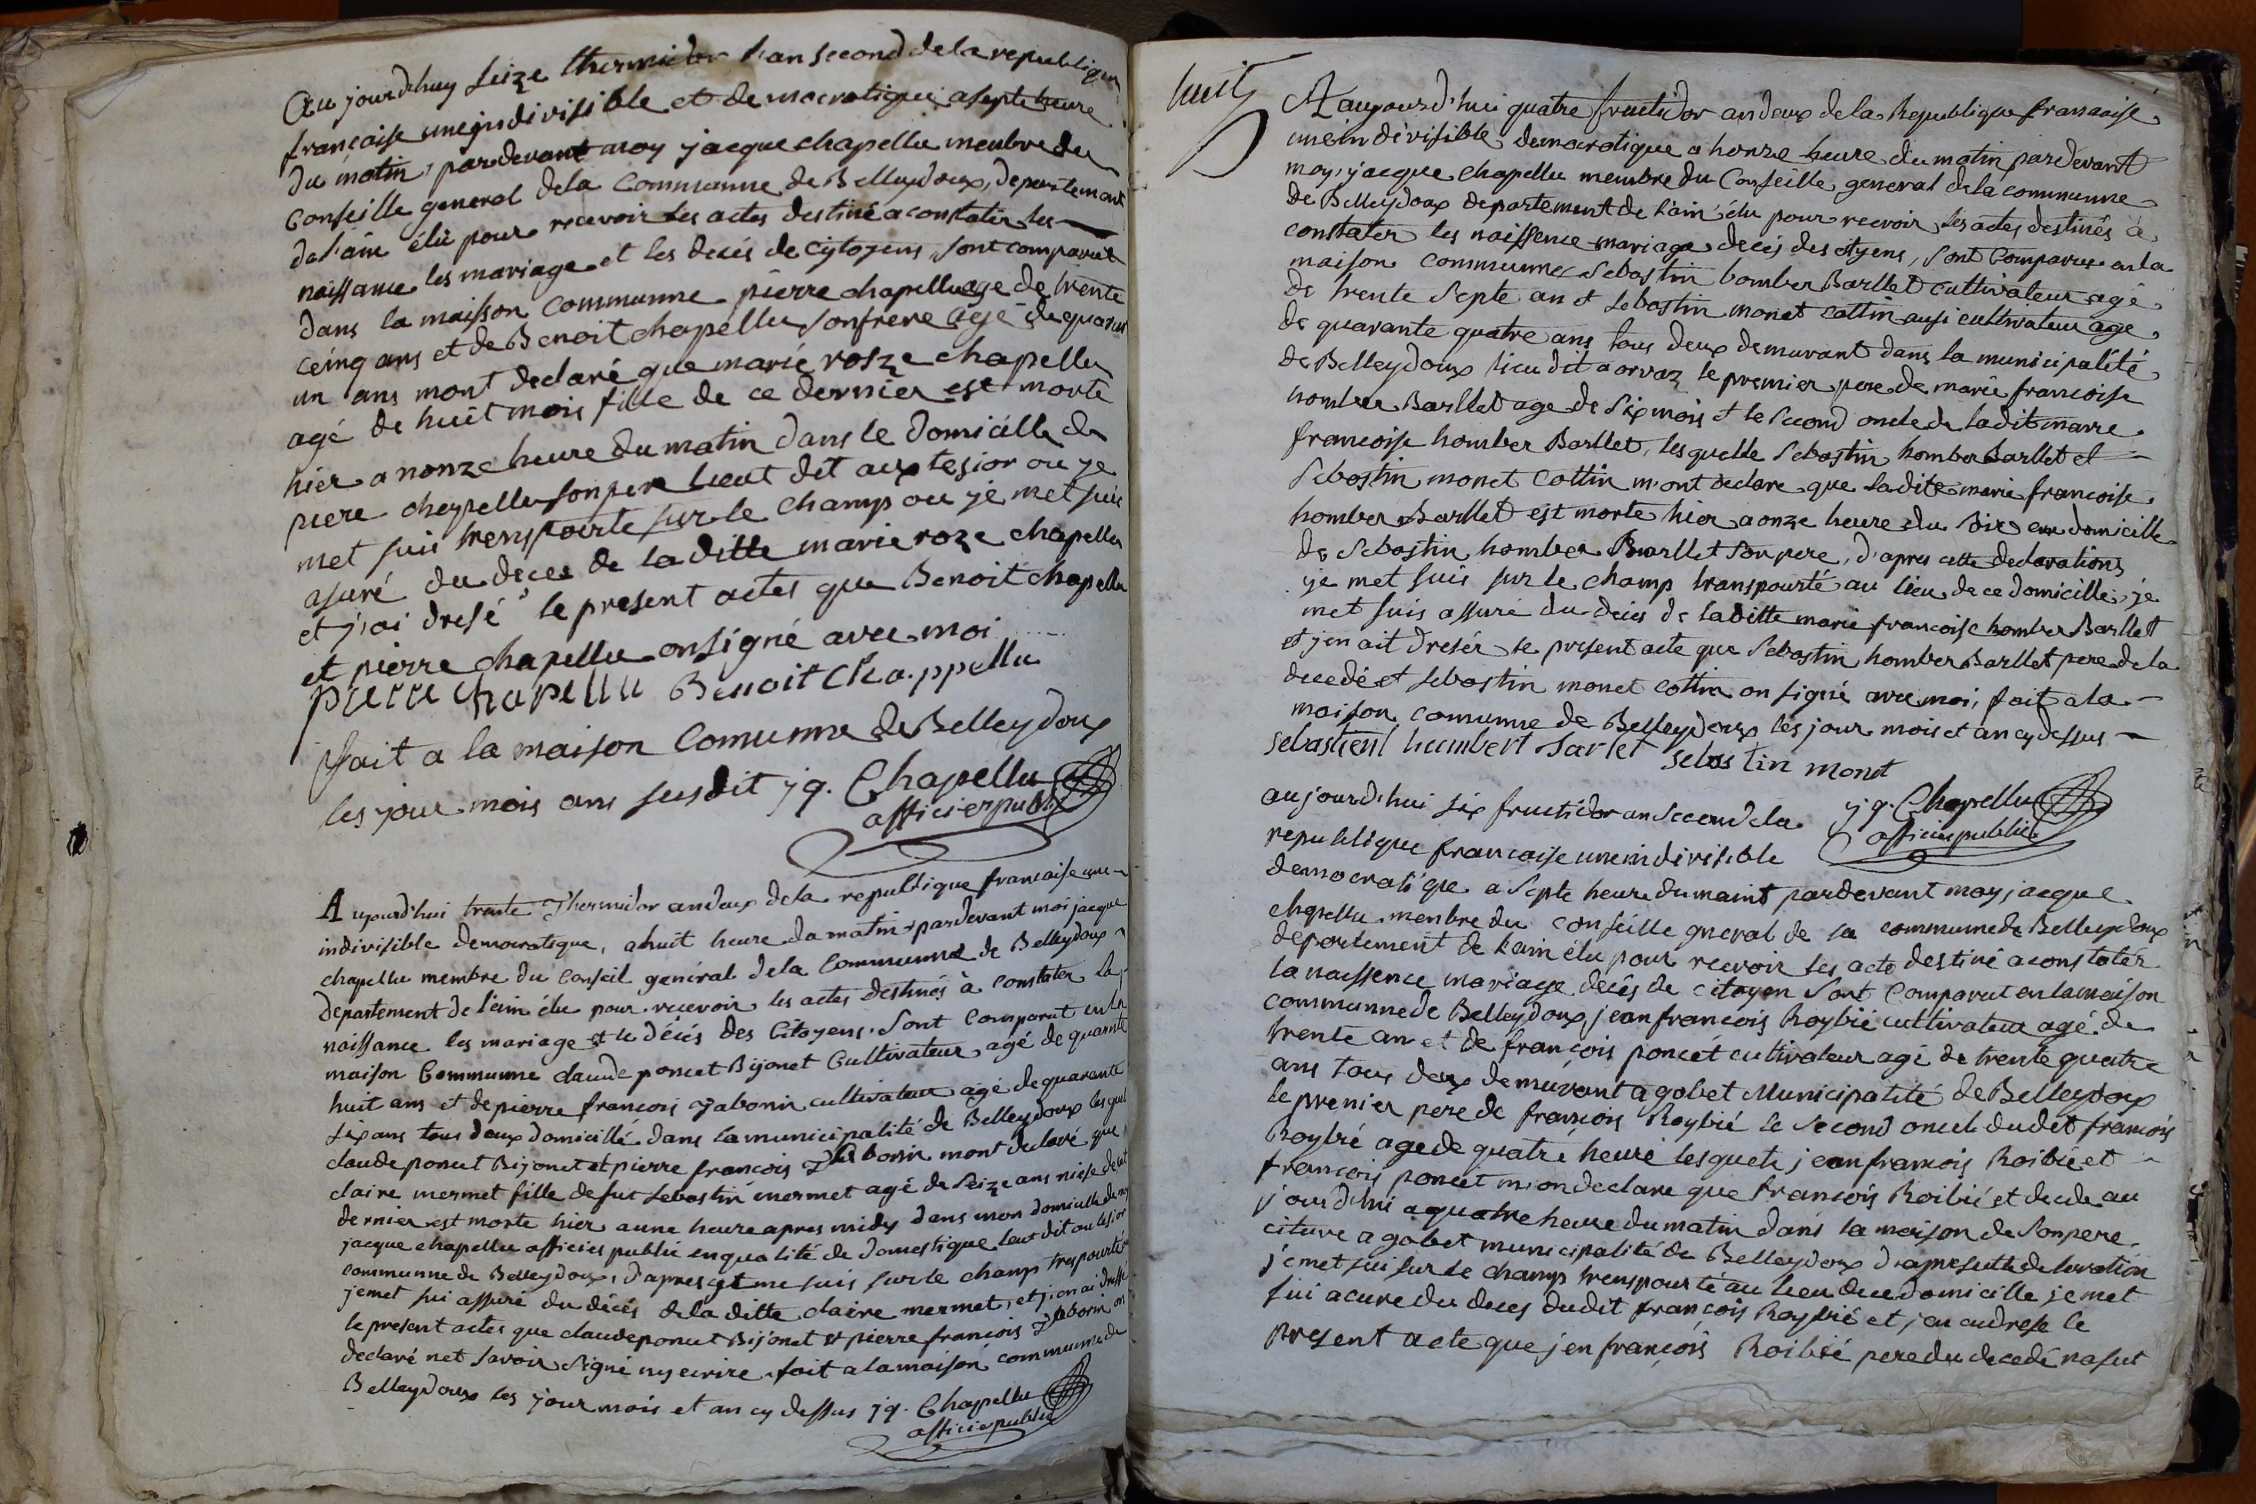 Au jourdhuy seize thermidor l'an second de la republique
française une indivisible et democratique a septe heure
du matin, pardevant moy jacque chapellu menbre du
Conseille general dela Communne de Belleydoux, departemant
de l'ain élü pour recevoir les actes destiné a constater les
naissance les mariage et les decés de cytoyens, sont comparut
dans la maison communne pierre chapellu age de trente
ceinq ans et de Benoit chapellu sonfrere agé de quarante
un ans mont declaré que marie rosze chapellu
agé de huit mois fille de ce dernier est morte
hier a nonze heure du matin dans le domicille de
piere chapellu son pere lieut dit aux tesior ou je
met suis transpourte sur le champ ou je met suis
asuré du deces de la ditte marie roze chapellu
et j'ai dresé le present actes que Benoit chapellu
et pierre chapellu onsigné avec moi
pierre chapellu Benoit Chappellu
fait a la maison Comunne de Belleydoux
les jour mois ans susdit jq. Chapellu
officier public
Aujourd'hui trente Thermidor an deux dela republique francaise une
indivisible democratique, a huit heure du matin pardevant moi jacque
chapellu membre du Conseil genéral dela Communne de Belleydoux
departement de l'ain élu pour recevoir les actes destinés à constater la
naissance les mariage et le décés des Citoyens. Sont Comparut en la
maison Communne claude poncet Bijonet Cultivateur agé de quarante
huit ans et de pierre francois Jabonin cultivateur agé de quarante
six ans tous deux domicillé dans la municipalité de Belleydoux lesquel
claude poncet Bijonet et pierre francois Jabonin mont declaré que
claire mermet fille defut sebastin mermet agé de Seize ans niese de cet
dernier est morte hier a une heure apres midy dans mon domicille de moy
jacque chapellu officier public en qualité de domestique leut dit au tesior
communne de Belleydoux, d'apres çet me suis sur le champ trespourté
jemet sui assuré du décés dela ditte claire mermet, et j'en ai dressé
le present actes que claude poncet Bijonet et pierre francois Jabonin on
declaré net savoir signé ny ecrire. fait a lamaison communne de
Belleydoux les jour mois et an cy dessus jq. Chapellu
officier public
huit
A aujourd'hui quatre fructidor an deux de la Republique francaise
une indévisible democratique a honze heure du matin pardevant
moy, jacque chapellu membre du Conseille general dela communne
de Belleydoux departement de l'ain élu pour recevoir les actes destinés à
constater les naissence mariage decés des citoyens, sont Comparus en la
maison communne Sebastin homber Barllet cultivateur agé
de trente septe an et sebastin monet cottin ausi cultivateur age
de quarante quatre ans tous deux demurant dans la municipalité
de Belleydoux lieu dit a orvaz le premier pere de marie francoise
homber Barllet age de six mois et le second oncle de ladit marie
francoise homber Barllet, lesquelle Sebastin homber Barllet et
Sebastin monet Cottin m'ont declare que ladite marie francoise
homber Barllet est morte hier a onze heure du soir au domicille
de Sebastin homber Barllet son pere, d'apres cette declarations
je met suis sur le champ transpourté au lieu de ce domicille, je
met suis assuré du decés de laditte marie francoise homber Barllet
et j'en ait dresér le present acte que Sebastin homber Barllet pere de la
decedé et sebastin monet cottin on signé avec moi, fait a la
maison comunne de Belleydoux les jour mois et an cy dessus
sebastient humbert Barlet sebastin monet
jq. Chapellu
officier public
aujourd'hui six fructidor an second de la
republique francaise une indivisible
democratique a septe heure du maint pardevant moy, jacque
chapellu menbre du conseille gneral de la communne de Belleydoux
departement de l'ain élu pour recevoir les acte destiné a constatér
la naissence mariage decés de citoyen Sont Comparut en lamaison
communne de Belleydoux jean françois Roybié cultivateur agé de
trente an et de françois poncét cultivateur agé de trente quatre
ans tous deux demurant a gobet Municipalité de Belleydoux
le premier pere de francois Roybié le second oncle dudit francois
Roybié age de quatre heure lesquele jean francois Roibié et
francois poncet m'on declare que francois Roibié et decede au
jourd'hui a quatre heure du matin dans la maison de Sonpere
citure a gobet municipalité de Belleydoux d'apres cette delaration
jemet sui sur le champ trenspourté au lieu de ce domicille je met
sui acure du deces dudit françois Roybié et j'en ai drese le
present acte que jen françois Roibié pere du decedé nasut